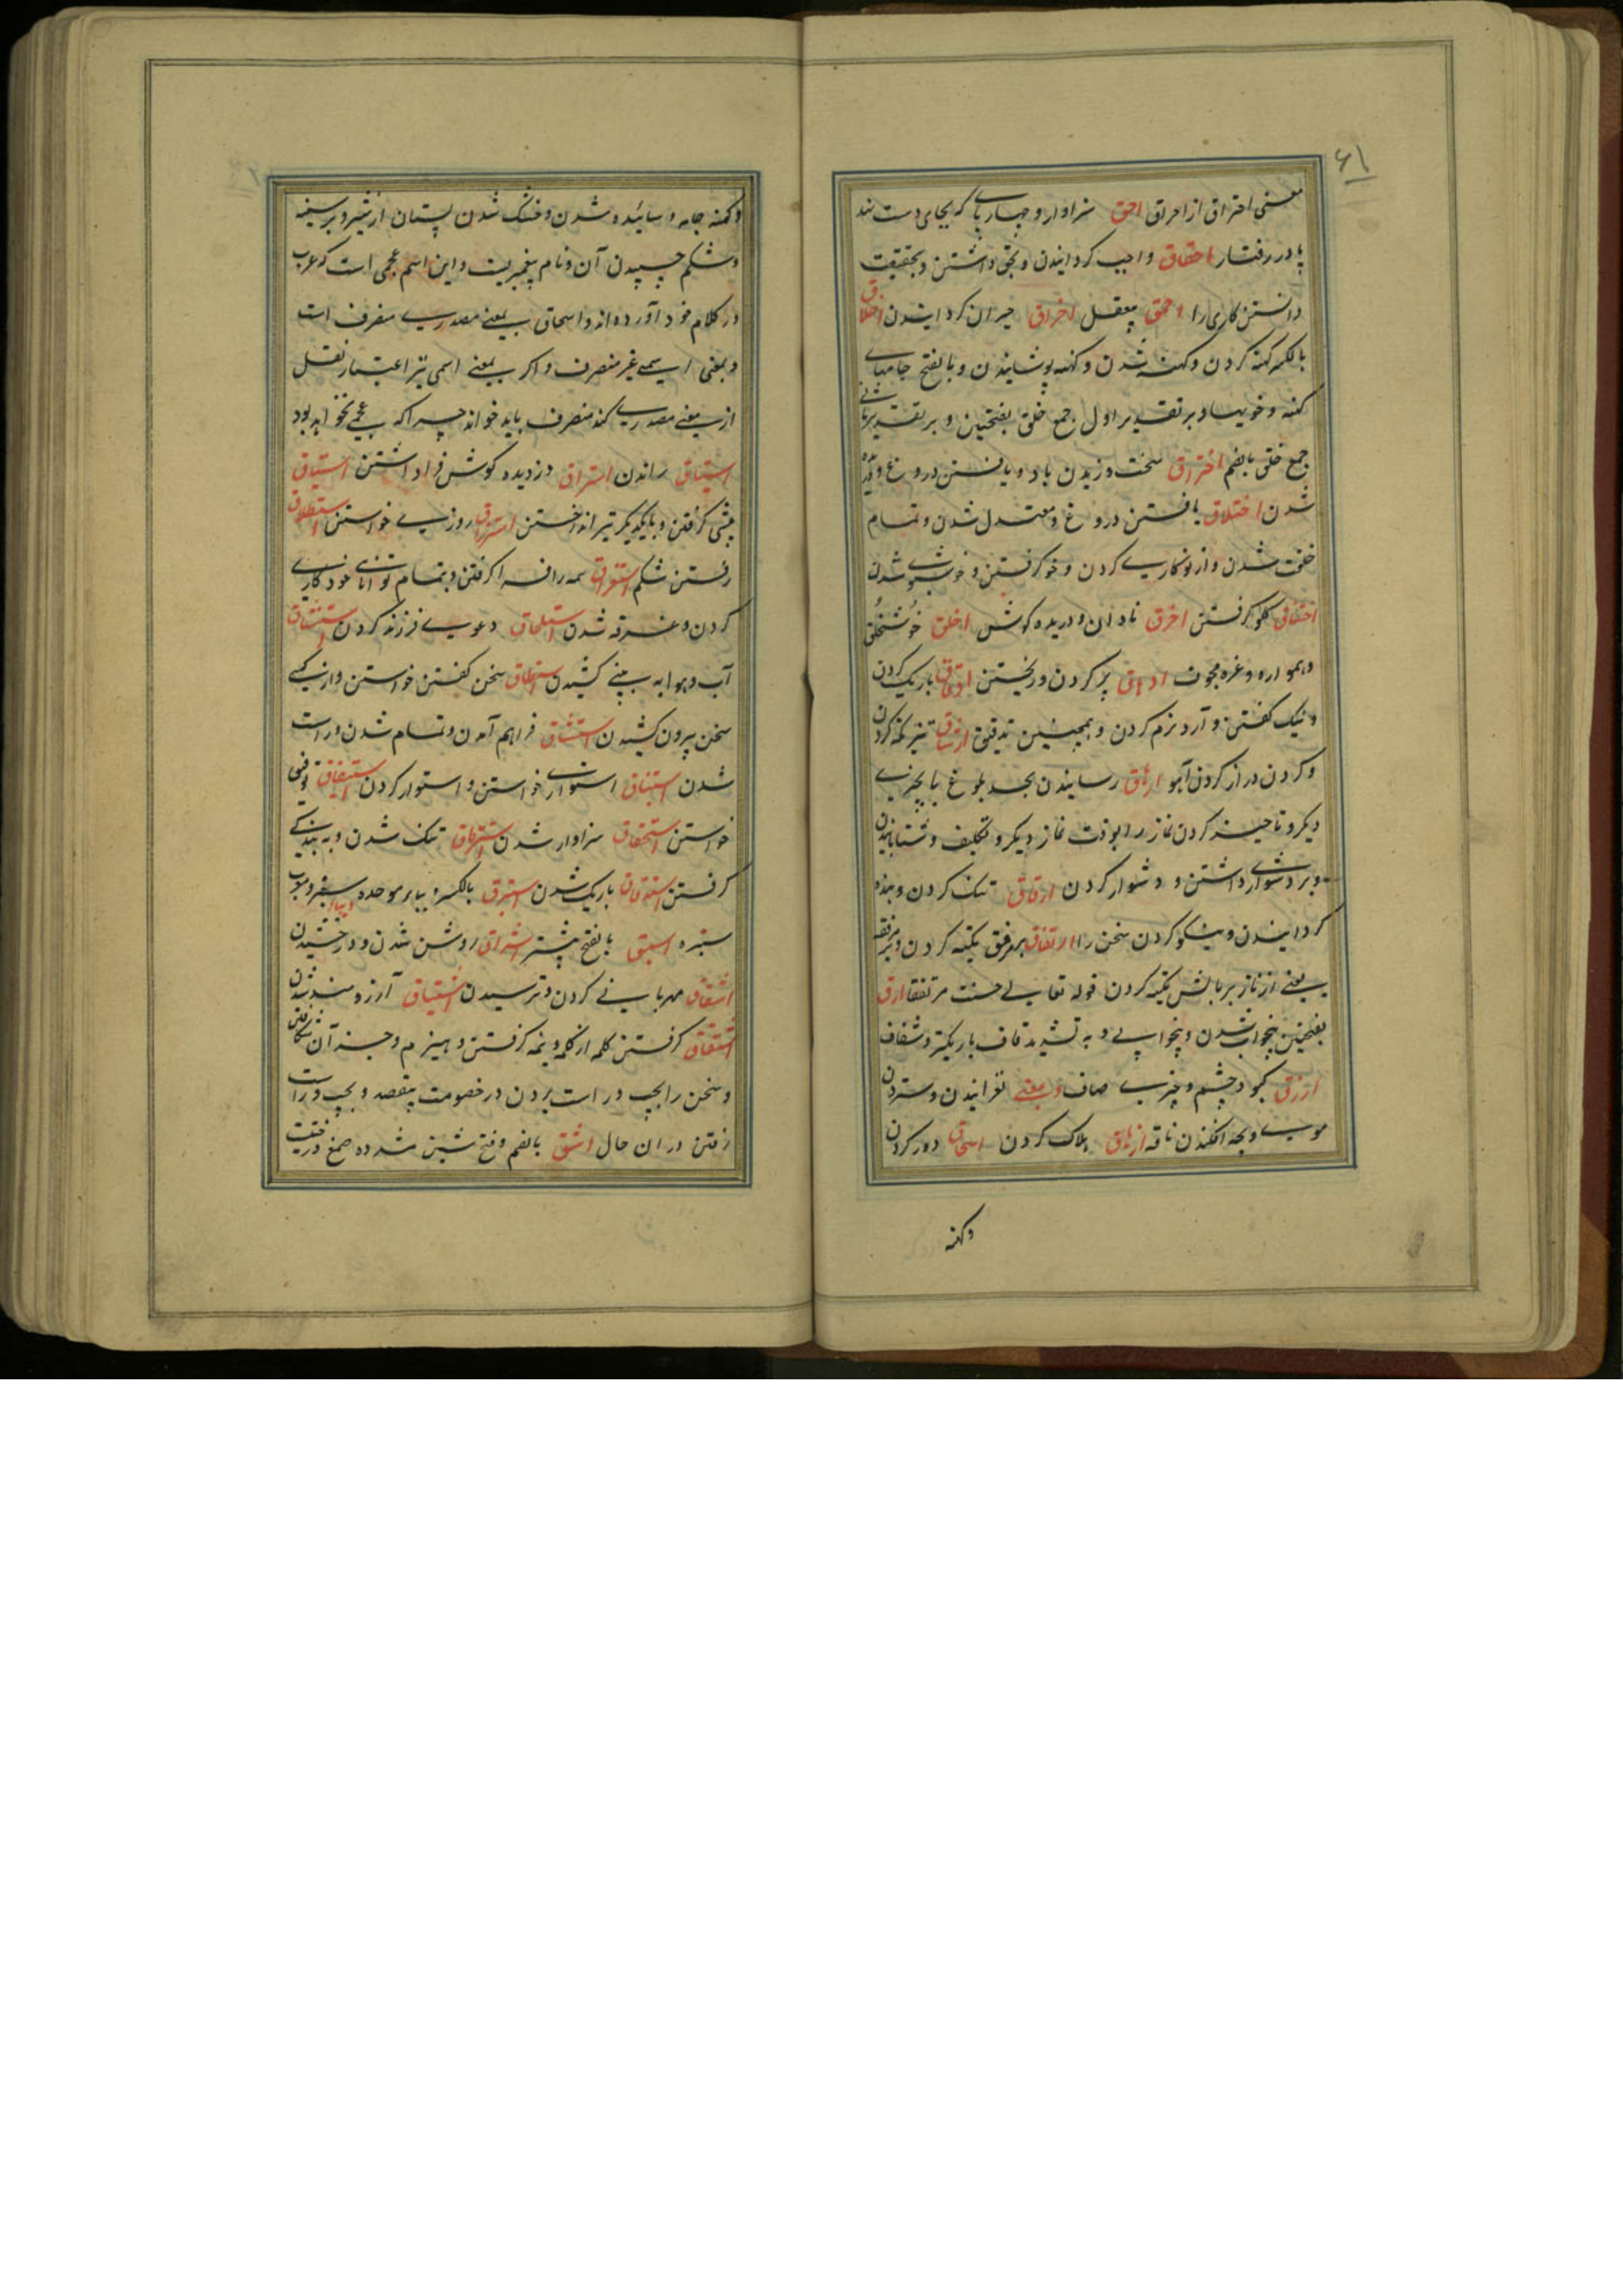 ۶۱
معنی احتراق از احراق احق سزاوار و چهارپای که بجای دست نهد
پا در رفتار احقاق واجب کردانیدن و بحق داشتن و بحقیقت
دانستن کاری را احمق بیعقل اخراق حیران کردانیدن اخلاق
بالکسر کهنه کردن و کهنه شدن و کهنه پوشانیدن و بالفتح جامهای
کهنه و خویها و بر تقدیر اول جمع خلق بفتحتین و بر تقدیر ثانی
جمع خلق بالضم اختراق سخت وزیدن باد و بافتن دروغ و دریده
شدن اختلاق بافتن دروغ و معتدل شدن و تمام
خلقت شدن و از نو کاری کردن و خو کرفتن و خوشبوی شدن
اختناق کلو کرفتن اخرق نادان و دریده کوش اخلق خوشخلق
و هموار و ادهاق پر کردن و ریختن ادقاق باریک کردن
و نیک کفتن و آرد نرم کردن و همچنین تدقیق ارشاق تیز نکه کردن
و کردن دراز کردن آهو ارهاق رسانیدن بحد بلوغ یا بچیزی
دیکر و تاخیر کردن نماز را بوقت نماز دیکر و تکلیف و شتابانیدن
و بر دشواری داشتن و دشوار کردن ارقاق تنک کردن و بنده
کردانیدن و نیکو کردن سخن را ارتفاق بر مرفق تکیه کردن و بر مرفقه
یعنی از ناز بر بالش تکیه کردن قوله تعالی حسنت مرتفقا ارق
بفتحتین بیخواب شدن و بیخوابی و به تشدید قاف باریکتر و شفاف
ازرق کبود چشم و چیزی صاف و بمعنی لغزانیدن و ستردن
موی و بچه افکندن ناقه ازهاق هلاک کردن اسحاق دور کردن
وکهنه
وکهنه جامه و سائیده شدن و خشک شدن پستان از شیر و بر سینه
و شکم چسپیدن آن و نام پیغمبریست و این اسم عجمی است که عرب
در کلام خود آورده اند و اسحاق بمعنی مصدری منصرف است
و بمعنی اسمی غیر منصرف و اکر بمعنی اسمی نیز اعتبار نقل
از معنی مصدری کند منصرف باید خواند چرا که عجمی نخواهد بود
استیاق راندن استراق دزدیده کوش فرا داشتن استباق
پیشی کرفتن و با یکدیکر تیر انداختن استرزاق روزی خواستن استطلاق
رفتن شکم استغراق همه را فرا کرفتن و بتمام توانای خود کاری
کردن و غرقه شدن استلحاق دعوی فرزند کردن استنشاق
آب و هوا به بینی کشیدن استنطاق سخن کفتن خواستن و از کسی
سخن بیرون کشیدن استنساق فراهم آمدن و تمام شدن و راست
شدن استیثاق استواری خواستن و استوار کردن استیفاق توفیق
خواستن استحقاق سزاوار شدن استرقاق تنک شدن و به بندکی
کرفتن استدقاق باریک شدن استبرق بالکسر و بیای موحده دیبای سطبر معرب
ستبره اسبق بالفتح پیشتر اشراق روشن شدن و درخشیدن
اشفاق مهربانی کردن و ترسیدن اشتیاق آرزومند شدن
اشتقاق کرفتن کلمه از کلمه و نیمه کرفتن و هیزم و جز آن شکافتن
و سخن را بچپ و راست بردن در خصومت بیقصد و بچپ و راست
رفتن در ان حال اشق بالضم و فتح شین مشدده صمغ درختیست